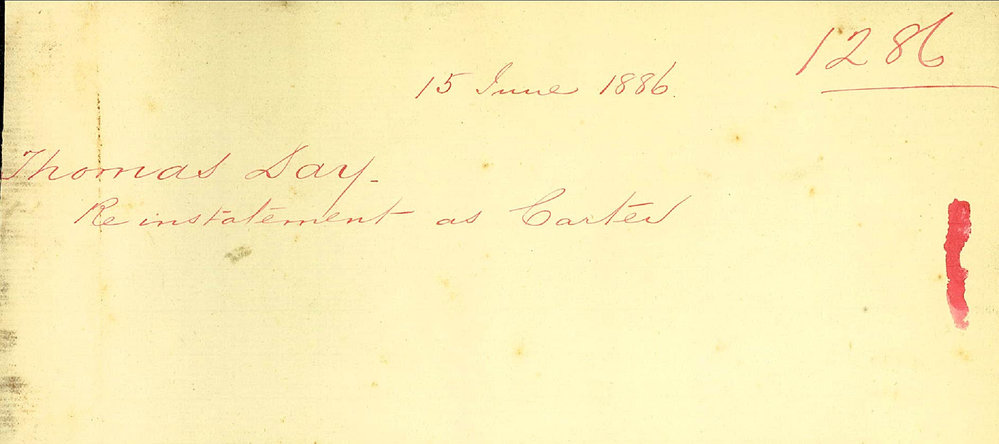 1286
15 June 1886.
Thomas Day.
Re instatement as Carter